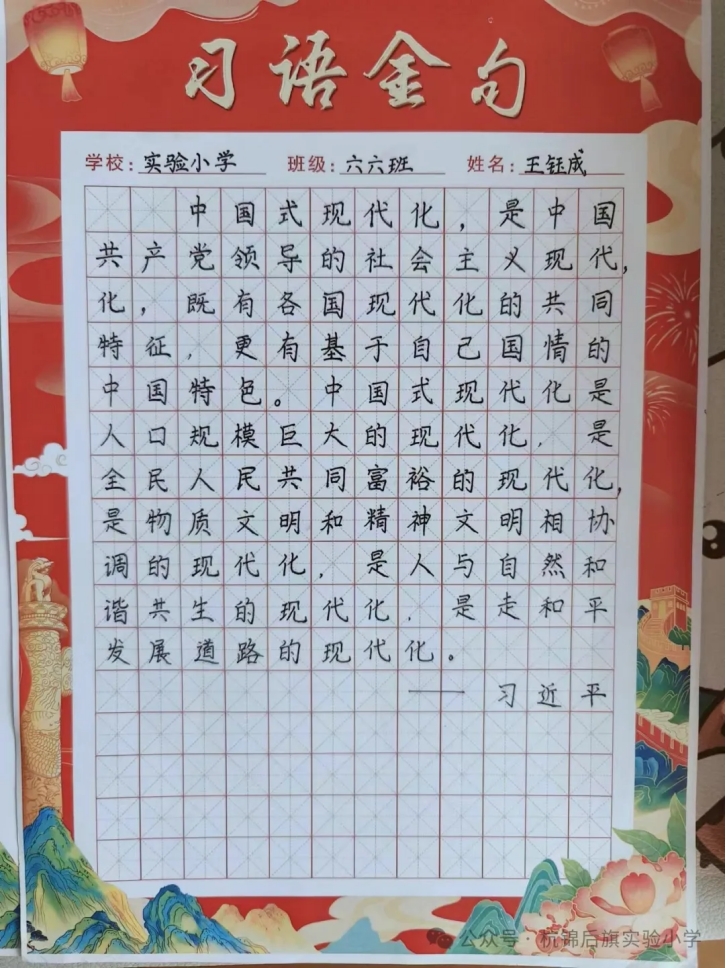 习语金句
学校：实验小学 班级：六六班 姓名：王钰成
中国式现代化，是中国
共产党领导的社会主义现代，
化，既有各国现代化的共同
特征，更有基于自己国情的
中国特色。中国式现代化是
人口规模巨大的现代化，是
全民人民共同富裕的现代化，
是物质文明和精神文明相协
调的现代化，是人与自然和
谐共生的现代化，是走和平
发展道路的现代化。
—— 习近平
公众号·杭锦后旗实验小学